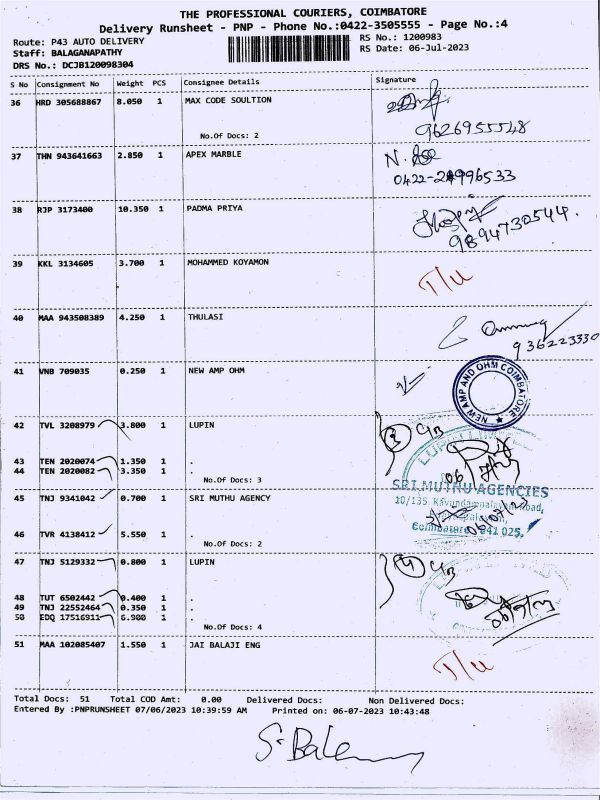 THE PROFESSIONAL COURIERS, COIMBATORE
Delivery Runsheet - PNP - Phone No.:0422-3505555 - Page No.:4
Route: P43 AUTO DELIVERY
RS No.: 1200983
Staff: BALAGANAPATHY
RS Date: 06-Jul-2023
DRS No.: DCJB120098304
S No Consignment No Weight PCS Consignee Details Signature
36 HRD 305688867 8.050 1 MAX CODE SOULTION
No.Of Docs: 2
9626955548
37 THN 943641663 2.850 1 APEX MARBLE
38 RJP 3173400 10.350 1 PADMA PRIYA
9894730544.
39 KKL 3134605 3.700 1 MOHAMMED KOYAMON
40 MAA 943508389 4.250 1 THULASI
936223330
41 VNB 709035 0.250 1 NEW AMP OHM
NEW AMP AND OHM COIMBATORE
42 TVL 3208979 3.800 1 LUPIN
3
43 TEN 2020074 1.350 1 .
44 TEN 2020082 3.350 1 .
No.Of Docs: 3
45 TNJ 9341042 0.700 1 SRI MUTHU AGENCY
SRI MUTHU AGENCIES
10/135, Kavundampalayam Road,
Coimbatore - 641 025.
06/07/23
46 TVR 4138412 5.550 1 .
No.Of Docs: 2
47 TNJ 5129332 0.800 1 LUPIN
4
48 TUT 6502442 0.400 1 .
49 TNJ 22552464 0.350 1 .
50 EDQ 17516911 6.900 1 .
No.Of Docs: 4
51 MAA 102085407 1.550 1 JAI BALAJI ENG
Total Docs: 51 Total COD Amt: 0.00 Delivered Docs: Non Delivered Docs:
Entered By :PNPRUNSHEET 07/06/2023 10:39:59 AM Printed on: 06-07-2023 10:43:48